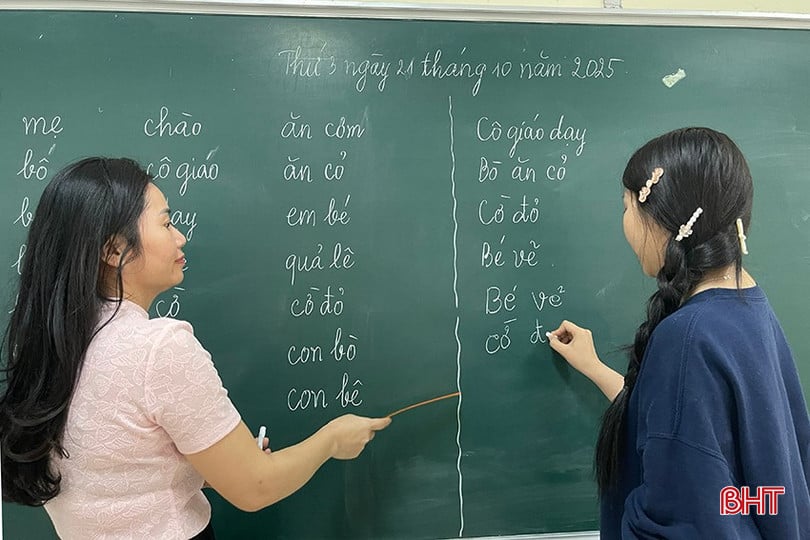 Thứ 3 ngày 21 tháng 10 năm 2025
mẹ
bố
chào
cô giáo
ăn cơm
ăn cỏ
em bé
quả lê
cờ đỏ
con bò
con bê
Cô giáo dạy
Bò ăn cỏ
Cờ đỏ
Bé vẽ
Bé vẽ
cờ đ
BHT